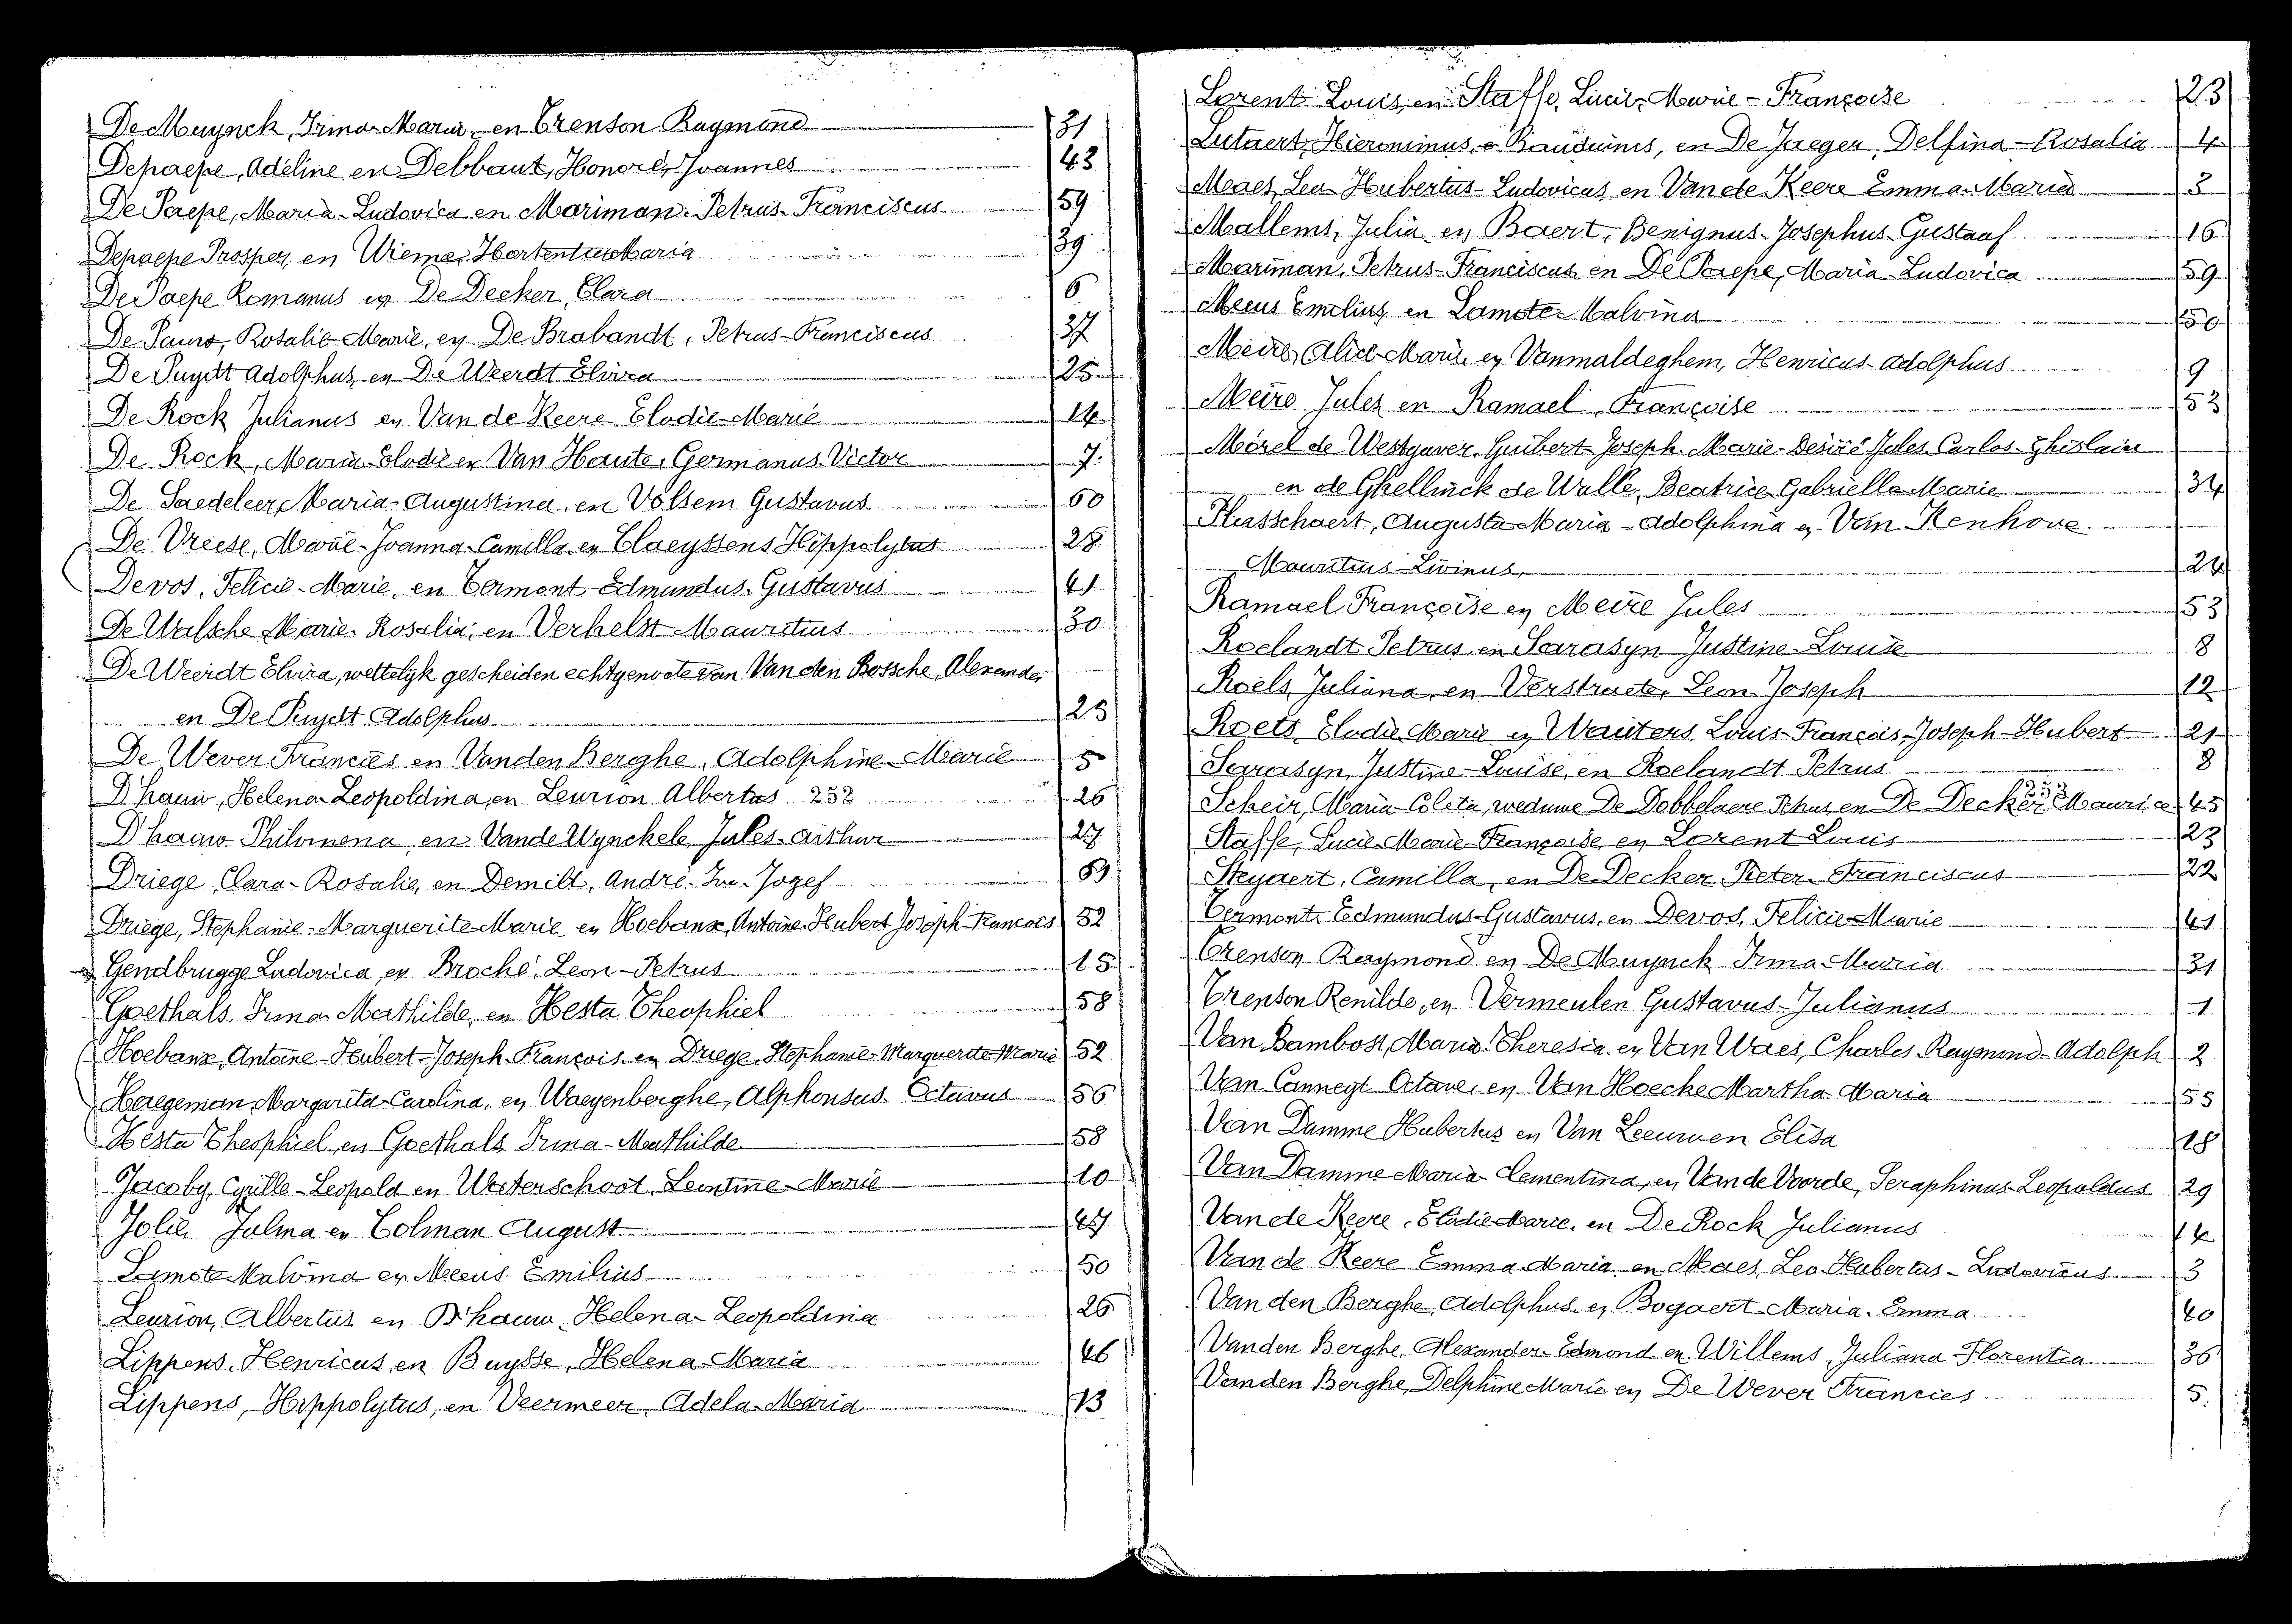 De Muynck, Irma-Maria, en Trenson Raymond 31
Depaepe, Adeline en Debbaut, Honoré, Joannes 43
De Paepe, Maria-Ludovica en Mariman. Petrus-Franciscus 59
Depaepe Prosper, en Wieme, Hortentia Maria 39
De Paepe Romanus en De Decker, Clara 6
De Pauw, Rosalie-Marie, en De Brabandt, Petrus-Franciscus 37
De Puydt Adolphus, en De Weerdt Elvira 25
De Rock Julianus en Van de Keere Elodie-Marie 14
De Rock, Maria-Elodie en Van Haute, Germanus-Victor 7.
De Saedeleer, Maria-Augustina, en Volsem Gustavus 60
De Vreese, Marie-Joanna-Camilla en Claeyssens Hippolytus 28
Devos, Felicie-Marie, en Termont Edmundus-Gustavus 41
De Walsche Marie-Rosalia, en Verhelst Mauritius 30
De Weerdt Elvira, wettelyk gescheiden echtgenoote van Van den Bossche, Alexander
en De Puydt Adolphus 25
De Wever Francies en Vanden Berghe, Adolphine-Marie 5
D'hauw, Helena-Leopoldina, en Leurion Albertus 252 26
D'hauw Philomena, en Vande Wynckele, Jules-Arthur 27
Driege, Clara-Rosalie, en Demild, André-Jozef 59
Driege, Stephanie-Marguerite-Marie en Hoebanx, Antoine-Hubert-Joseph-Francois 52
Gendbrugge Ludovica, en Broché, Leon-Petrus 15
Goethals Irma-Mathilde, en Hesta Theophiel 58
Hoebanx, Antoine-Hubert-Joseph-François en Driege, Stephanie-Marguerite-Marie 52
Haegeman, Margarita-Carolina, en Waeyenberghe, Alphonsus-Octavus 56
Hesta Theophiel, en Goethals Irma-Mathilde 58
Jacoby, Cyrille-Leopold en Westerschoot, Leontine-Marie 10
Jolie Julma en Colman August 47
Lamote Malvina en Meeus Emilius 50
Leurion, Albertus en D'hauw Helena-Leopoldina 26
Lippens, Henricus, en Buysse, Helena-Maria 46
Lippens, Hippolytus, en Veermeer, Adela-Maria 13
Lorent Louis, en Staffe, Lucie-Marie-Françoise 23
Lutaert, Hieronimus, Bauduinus, en De Jaeger, Delfina-Rosalia 4
Maes, Leo-Hubertus-Ludovicus, en Van de Keere Emma-Maria 3
Mallems, Julia en Baert, Benignus-Josephus-Gustaaf 16
Mariman, Petrus-Franciscus en De Paepe, Maria-Ludovica 59
Meeus Emilius en Lamote Malvina 50
Meire, Alice-Marie en Vanmaldeghem, Henricus-Adolphus 9
Meire Jules en Ramael, Françoise 53
Morel de Westgaver, Guibert-Joseph-Marie-Desiré-Jules-Carlos-Ghislain
en de Ghellinck de Walle, Beatrice-Gabrielle-Marie 34
Plasschaert, Augusta-Maria-Adolphina en Van Kenhove
Mauritius-Livinus, 24
Ramael Françoise en Meire Jules 53
Roelandt Petrus en Sarasyn Justine-Louise 8
Roels, Juliana, en Verstraete, Leon-Joseph 12
Roets, Elodie-Marie en Wauters, Louis-François-Joseph-Hubert 21
Sarrasyn, Justine-Louise, en Roelandt Petrus 8
Scheir, Maria-Coleta, weduwe De Dobbelaere Petrus, en De Decker Maurice 253 45
Staffe, Lucie-Marie-Françoise, en Lorent Louis 23
Steyaert, Camilla, en De Decker Pieter-Franciscus 22
Termont, Edmundus-Gustavus, en Devos, Felicie-Marie 41
Trenson Raymond en De Muynck Irma-Maria 31
Trenson Renilde, en Vermeulen Gustavus-Julianus 1.
Van Bambost, Maria-Theresia en Van Waes, Charles-Raymond-Adolph 2
Van Canneyt Octave, en Van Hoecke Martha-Maria 55
Van Damme Hubertus en Van Leeuwen Elisa 18
Van Damme Maria-Clementina, en Van de Voorde, Seraphinus-Leopoldus 29
Van de Keere, Elodie-Marie, en De Rock Julianus 14
Van de Keere Emma-Maria en Maes, Leo-Hubertus-Ludovicus 3
Van den Berghe, Adolphus en Bogaert Maria-Emma 40
Vanden Berghe, Alexander-Edmond en Willems, Juliana-Florentia 36
Vanden Berghe, Delphine-Marie en De Wever Francies 5.